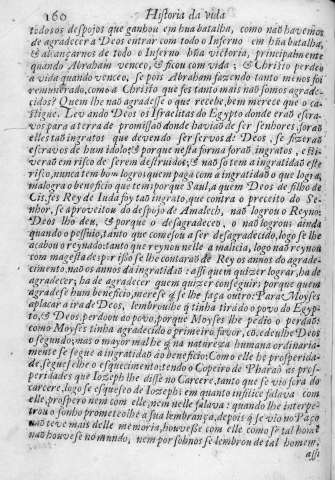 160 Historia da vida
todos os despojos que ganhou em hũa batalha, como naõ havemos
de agradecer a Deos entrar com todo o Inferno em hũa batalha,
& alcançarnos de todo o Inferno hũa victoria, principalmente
quando Abraham venceo, & ficou com vida; & Christo perdeo
a vida quando venceo, se pois Abraham fazendo tanto menos foi
remunerado, como a Christo que fes tanto mais naõ somos agrade-
cidos? Quem lhe naõ agradesse o que recebe, bem merece que o ca-
stigue. Levando Deos os Israelitas do Egypto donde eraõ es-
cravos para a terra de promissaõ donde haviaõ de ser senhores, foraõ
elles taõ ingratos que devendo ser servos de Deos, se fizeraõ
escravos de hum idolo; & porque nesta forma foraõ ingratos, esti-
veraõ em risco de serem destruidos; & naõ so tem a ingratidaõ este
risco, nunca tem bom logro; quem paga com a ingratidaõ o que logra,
malogra o beneficio que tem; porque Saul, a quem Deos de filho de
Cis, fes Rey de Iuda foy taõ ingrato, que contra o preceito do Se-
nhor, se aproveitou do despojo de Amalech, naõ logrou o Reyno:
Deos lho deu, & porque o desagradeceo, o naõ logrou; ainda
quando o pessuio, tanto que comesou a ser desagradecido, logo se lhe
acabou o reynado: tanto que reynou nelle a malicia, logo naõ reynou
com magestade; por isso se lhe contaraõ de Rey os annos do agrade-
cimento, naõ os annos da ingratidaõ: assi quem quizer lograr, ha de
agradecer; ha de agradecer quem quizer conseguir; porque quem
agradese hum beneficio, merese q̃ se lhe faça outro: Para Moyses
aplacar a ira de Deos, lembroulhe q̃ tinha tirado o povo do Egyp-
to, & Deos perdoou ao povo, porque Moyses lhe pedio o perdaõ;
como Moyses tinha agradecido o primeiro favor, cõcedeulhe Deos
o segundo; mas o mayor mal he q̃ na natureza humana ordinaria-
mente se segue a ingratidaõ ao beneficio: Como elle he prosperida-
de, seguese lhe o esquecimento; tendo o Copeiro de Pharaò as pros-
peridades que Iozeph lhe disse no Carcere, tanto que se vio fora do
carcere, logo se esqueseo de Iozeph; em quanto infilice falava com
elle, prospero nem com elle, nem nelle falava: quando lhe interpe-
trou o sonho prometeolhe a sua lembrança, depois q̃ se vio no Paço
naõ teve mais delle memoria, houvesse com elle como se tal homẽ
naõ houvese no mundo, nem por sobnos se lembrou de tal homem,
assi